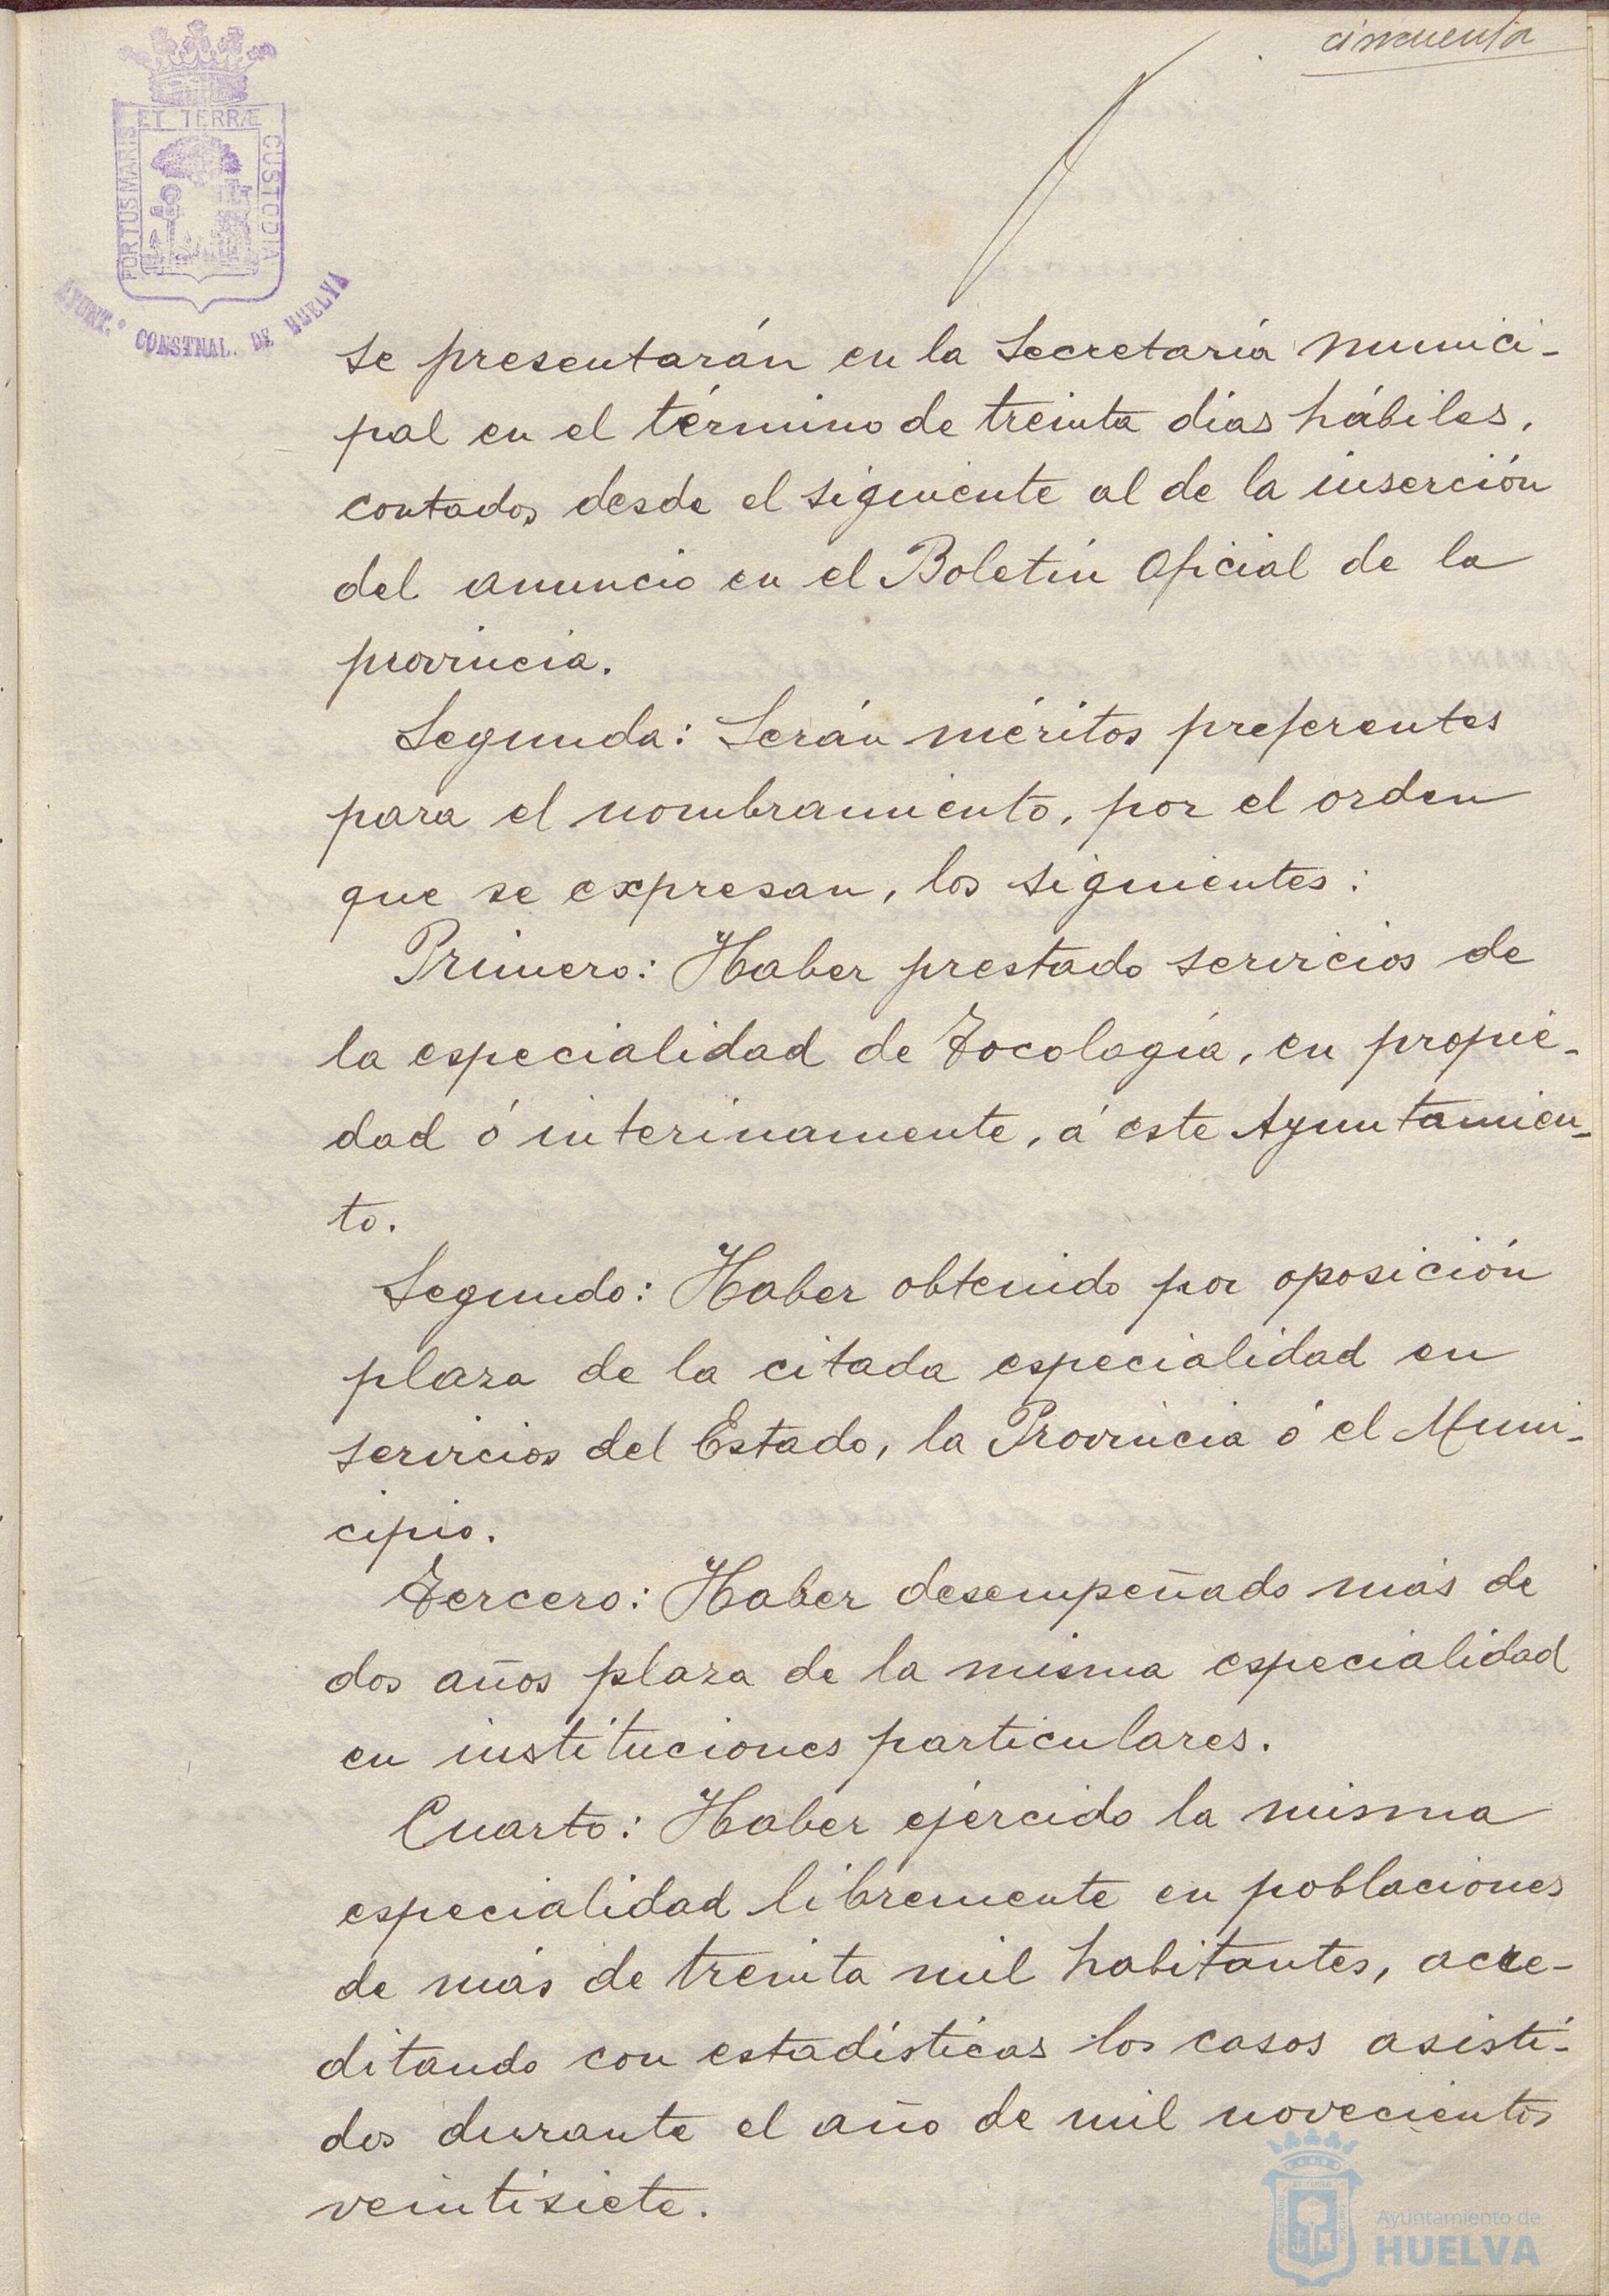 cincuenta
ET TERRÆ
PORTUS MARIS
CUSTODIA
AYUNT.º CONSTNAL. DE HUELVA
se presentarán en la Secretaría munici-
pal en el término de treinta días hábiles,
contados desde el siguiente al de la inserción
del anuncio en el Boletín Oficial de la
provincia.
Segunda: Serán méritos preferentes
para el nombramiento, por el orden
que se expresan, los siguientes:
Primero: Haber prestado servicios de
la especialidad de Tocología, en propie-
dad ó interinamente, á este Ayuntamien-
to.
Segundo: Haber obtenido por oposición
plaza de la citada especialidad en
servicios del Estado, la Provincia ó el Muni-
cipio.
Tercero: Haber desempeñado más de
dos años plaza de la misma especialidad
en instituciones particulares.
Cuarto: Haber ejercido la misma
especialidad libremente en poblaciones
de más de treinta mil habitantes, acre-
ditando con estadísticas los casos asisti-
dos durante el año de mil novecientos
veintisiete.
Ayuntamiento de
HUELVA